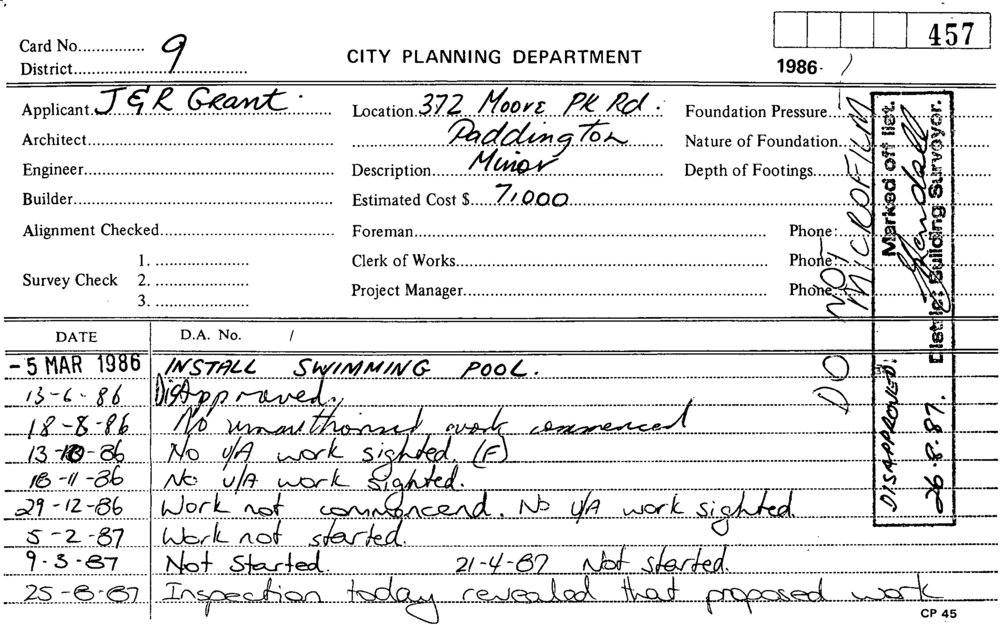 457
Card No............... 9
District
CITY PLANNING DEPARTMENT
1986- /
Applicant J & R Grant.
Location 372 Moore Pk Rd.
Foundation Pressure
Architect
Paddington
Nature of Foundation
Engineer
Description Minor
Depth of Footings
Builder
Estimated Cost $ 7,000
Alignment Checked
Foreman
Phone:
1.
Clerk of Works
Phone:
Survey Check 2.
Project Manager
Phone:
3.
DO NOT MICROFILM
DISAPPROVED. Marked off list.
26.8.87. District Building Surveyor.
DATE D.A. No. /
-5 MAR 1986 INSTALL SWIMMING POOL.
13-6-86 Disapproved.
18-8-86 No unauthorised work commenced
13-10-86 No U/A work sighted. (F)
18-11-86 No U/A work sighted.
29-12-86 Work not commencend. No U/A work sighted.
5-2-87 Work not started.
9-3-87 Not Started. 21-4-87 Not started.
25-8-87 Inspection today revealed that proposed work
CP 45